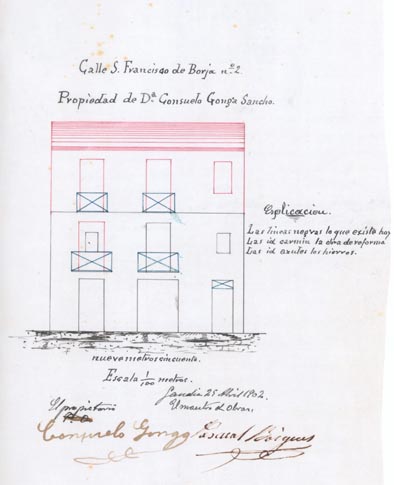 Calle S. Francisco de Borja nº 2.
Propiedad de Dª Consuelo Gonga Sancho.
Esplicacion.
Las lineas negras lo que existe hoy
Las id carmin la obra de reforma
Las id azules los hierros.
nueve metros cincuenta.
Escala 1/100 metros.
Gandia 25 Abril 1902.
El propietario
El maestro de Obras.
Consuelo Gonga
Pascual